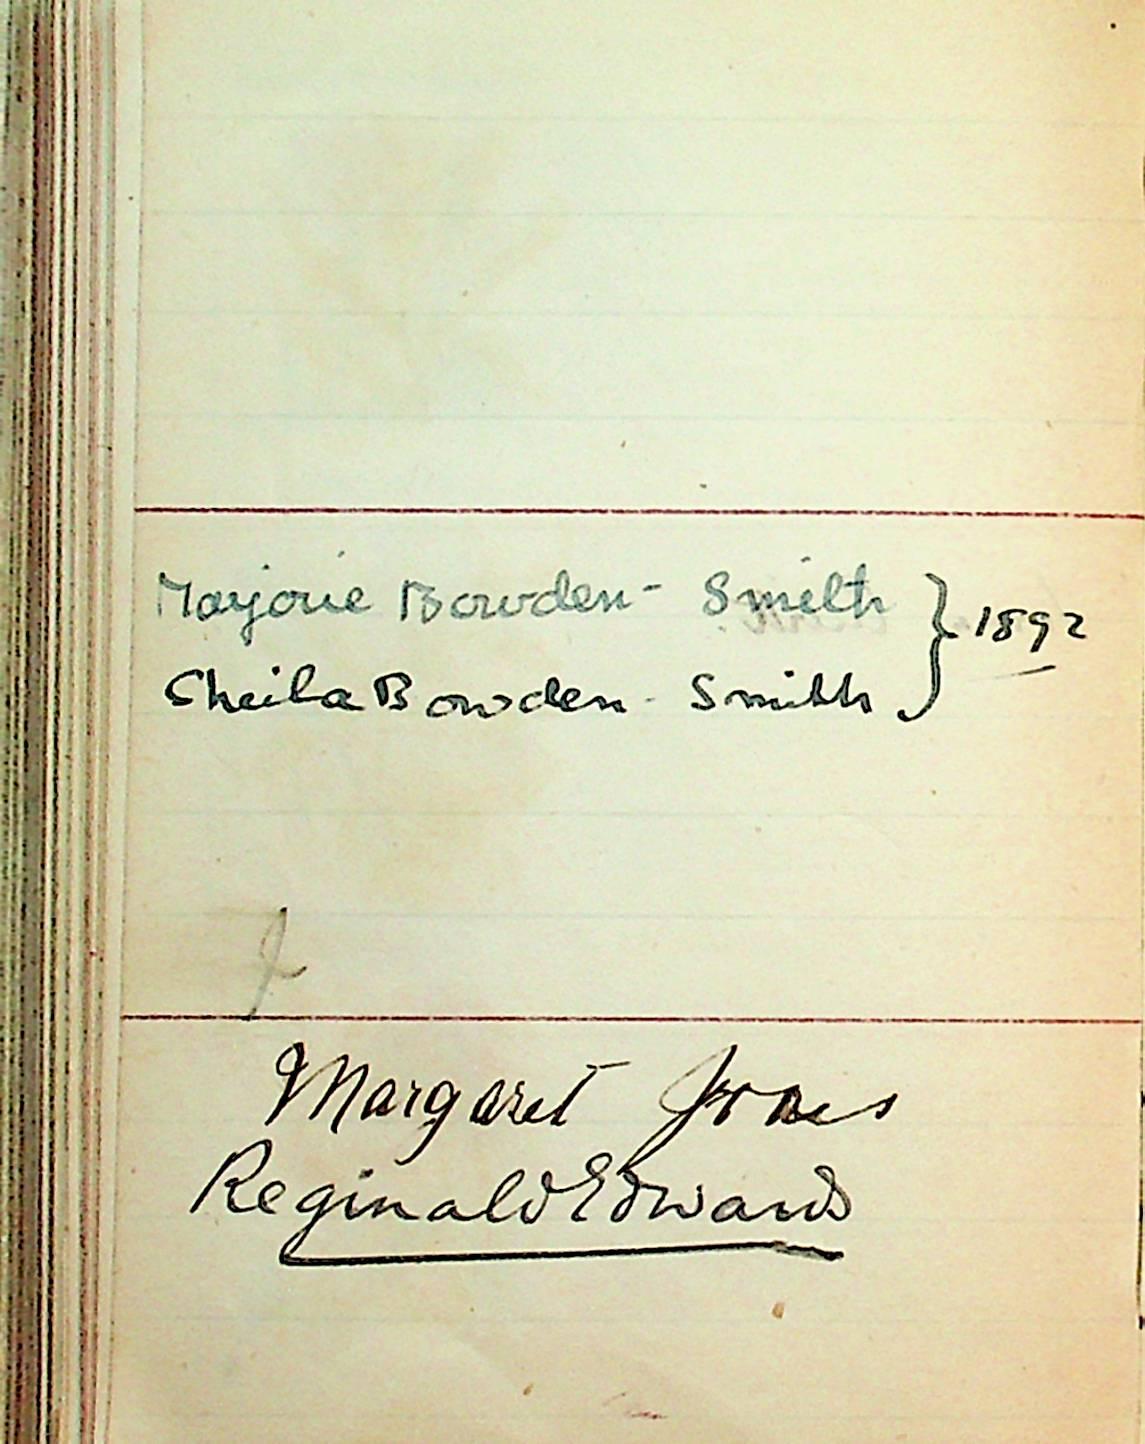 Marjorie Bowden-Smith } 1892
Sheila Bowden-Smith
Margaret Jones
Reginald Edwards